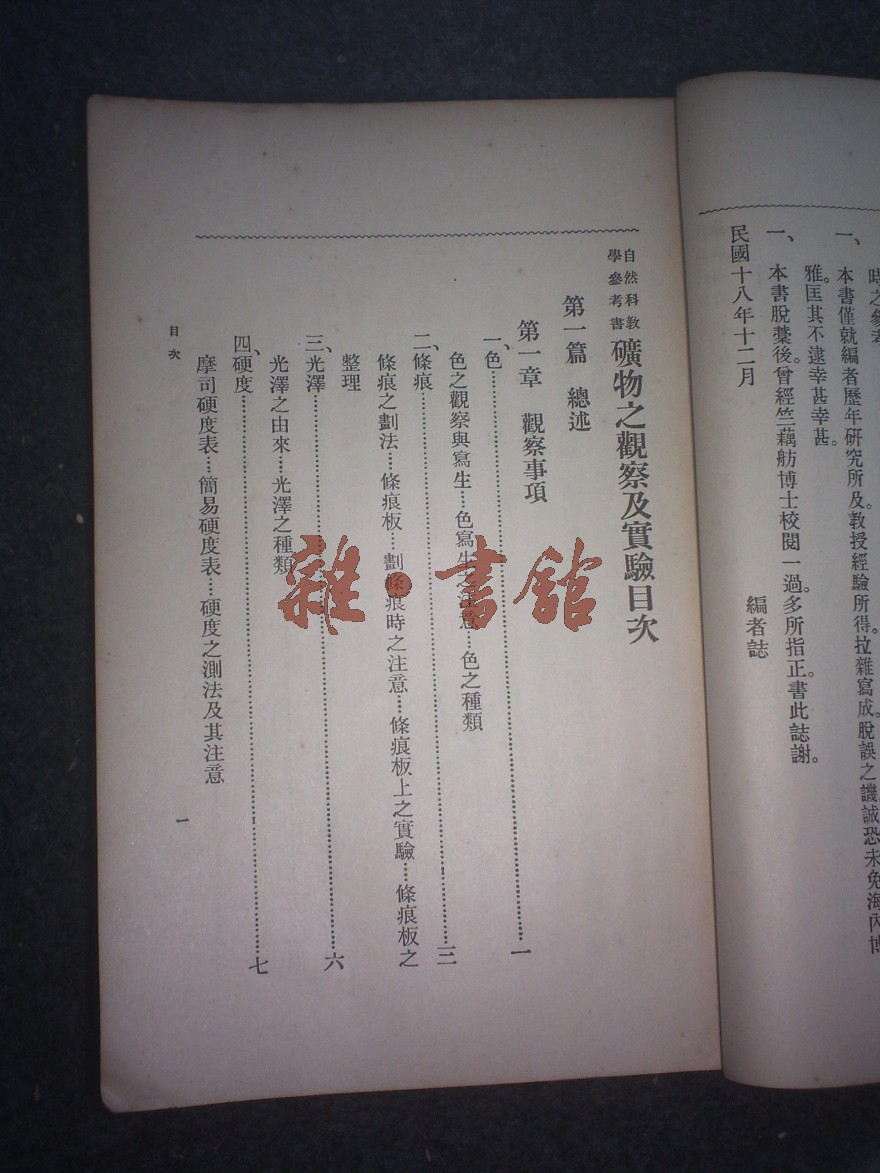 時之參考
一、本書僅就編者歷年研究所及。教授經驗所得。拉雜寫成。脫誤之譏。誠恐未免。海內博
雅。匡其不逮。幸甚幸甚。
一、本書脫藳後。曾經竺藕舫博士校閱一過。多所指正。書此誌謝。
民國十八年十二月
編者誌
自然科教
學參考書
礦物之觀察及實驗目次
第一篇 總述
第一章 觀察事項
一、色……一
色之觀察與寫生…色寫生之注意…色之種類
二、條痕……三
條痕之劃法…條痕板…劃條痕時之注意…條痕板上之實驗…條痕板之
整理
三、光澤……六
光澤之由來…光澤之種類
四、硬度……七
摩司硬度表…簡易硬度表…硬度之測法及其注意
目次
一
雜·書館